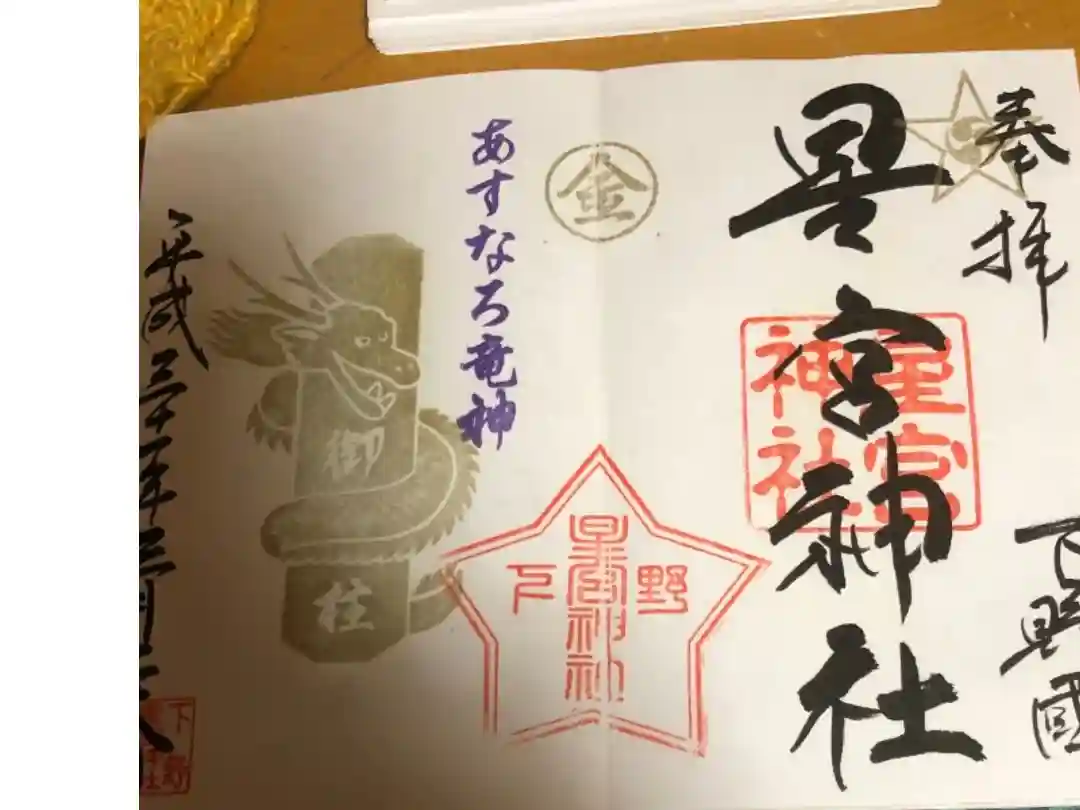 奉拝
下野國
星宮神社
星宮
神社
金
あすなろ竜神
下野
星宮神社
御
柱
平成三十一年三月
下野